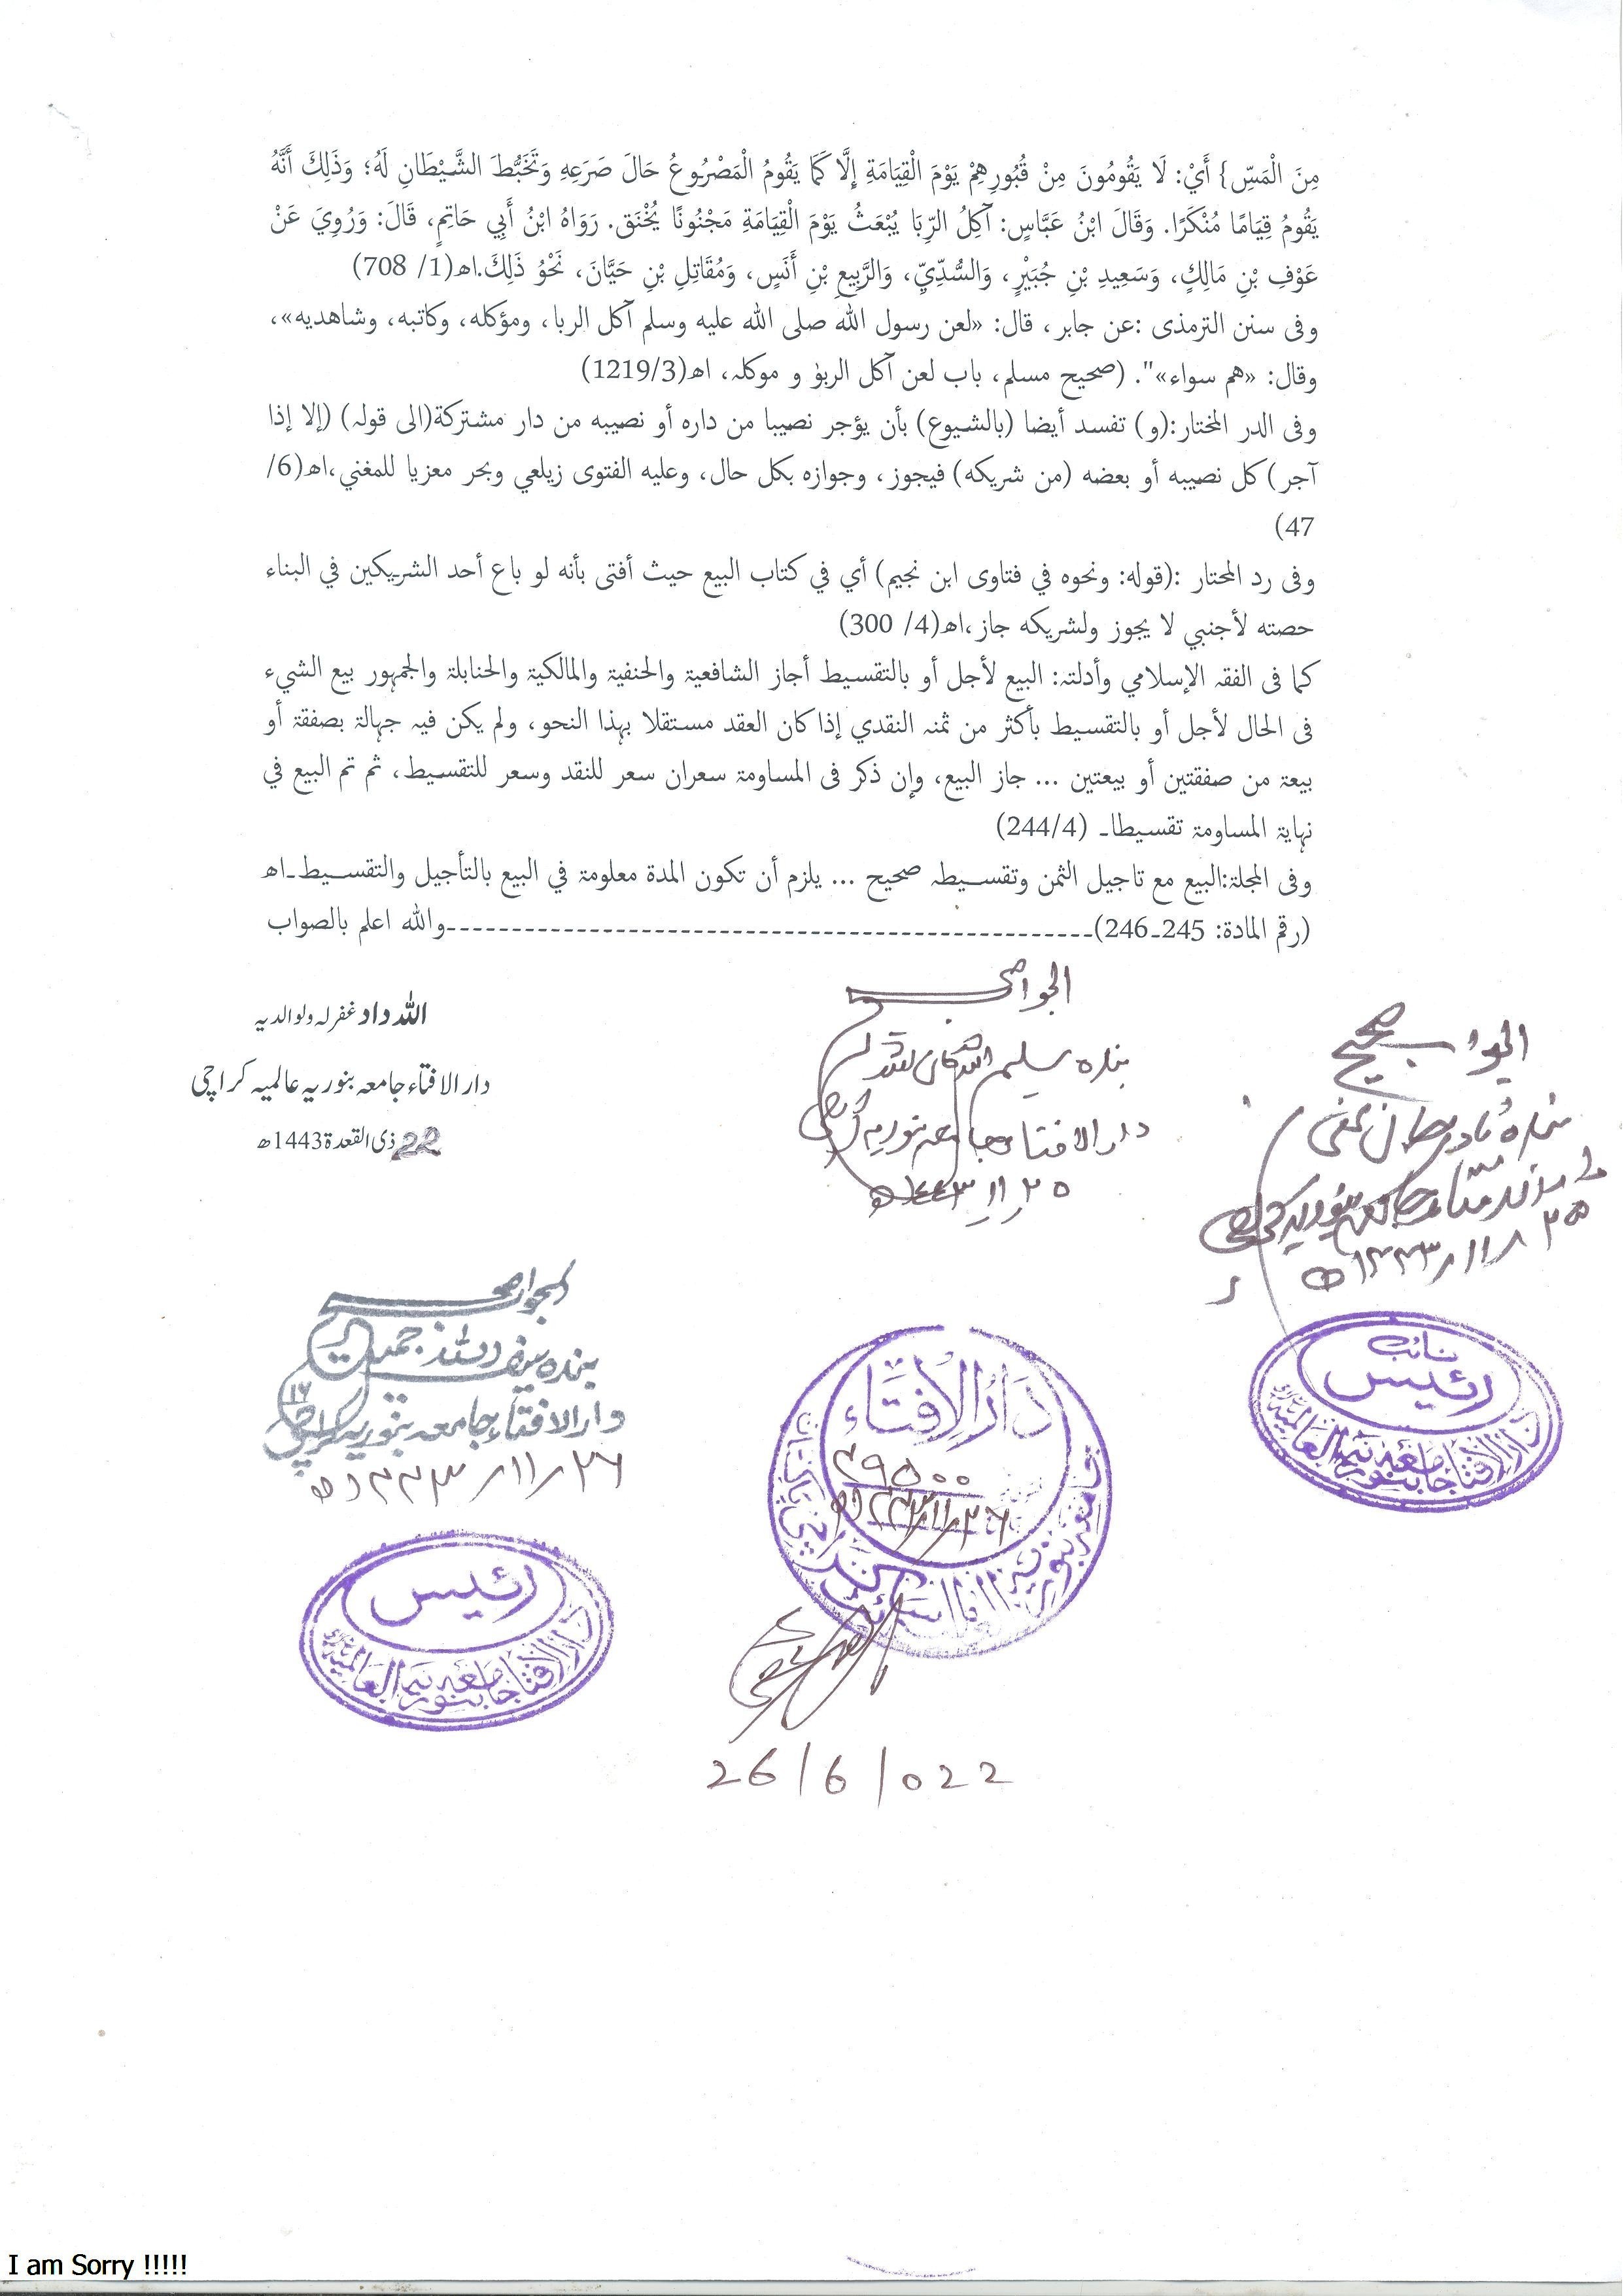 مِنَ الْمَسِّ} أَيْ: لَا يَقُومُونَ مِنْ قُبُورِهِمْ يَوْمَ الْقِيَامَةِ إِلَّا كَمَا يَقُومُ الْمَصْرُوعُ حَالَ صَرَعِهِ وَتَخَبُّطَ الشَّيْطَانِ لَهُ؛ وَذَلِكَ أَنَّهُ
يَقُومُ قِيَامًا مُنْكَرًا. وَقَالَ ابْنُ عَبَّاسٍ: آكِلُ الرِّبَا يُبْعَثُ يَوْمَ الْقِيَامَةِ مَجْنُونًا يُخْنَق. رَوَاهُ ابْنُ أَبِي حَاتِمٍ، قَالَ: وَرُوِيَ عَنْ
عَوْفِ بْنِ مَالِكٍ، وَسَعِيدِ بْنِ جُبَيْرٍ، وَالسُّدِّيِّ، وَالرَّبِيعِ بْنِ أَنَسٍ، وَمُقَاتِلِ بْنِ حَيَّانَ، نَحْوُ ذَلِكَ.اھ(1/ 708)
وفی سنن الترمذی :عن جابر، قال: «لعن رسول الله صلى الله عليه وسلم آكل الربا، ومؤكله، وكاتبه، وشاهديه»،
وقال: «هم سواء»". (صحیح مسلم، باب لعن آکل الربوٰ و موکلہ، اھ(1219/3)
وفی الدر المختار:(و) تفسد أيضا (بالشيوع) بأن يؤجر نصيبا من داره أو نصيبه من دار مشتركة(الی قولہ) (إلا إذا
آجر) كل نصيبه أو بعضه (من شريكه) فيجوز، وجوازه بكل حال، وعليه الفتوى زيلعي وبحر معزيا للمغني،اھ(6/
47)
وفی رد المحتار :(قوله: ونحوه في فتاوى ابن نجيم) أي في كتاب البيع حيث أفتى بأنه لو باع أحد الشريكين في البناء
حصته لأجنبي لا يجوز ولشريكه جاز،اھ(4/ 300)
کما فی الفقہ الإسلامي وأدلتہ: البيع لأجل أو بالتقسيط أجاز الشافعية والحنفية والمالكية والحنابلة والجمہور بيع الشيء
فی الحال لأجل أو بالتقسيط بأكثر من ثمنہ النقدي إذا كان العقد مستقلا بہذا النحو، ولم يكن فيہ جہالة بصفقة أو
بيعة من صفقتين أو بيعتين ... جاز البيع، وإن ذكر فی المساومة سعران سعر للنقد وسعر للتقسيط، ثم تم البيع في
نہاية المساومة تقسيطا۔ (244/4)
وفی المجلة:البيع مع تاجيل الثمن وتقسيطہ صحيح ... يلزم أن تكون المدة معلومة في البيع بالتأجيل والتقسيط۔اھ
(رقم المادة: 245۔246)------------------------------------------------والله اعلم بالصواب
اللہ داد غفر لہ ولوالدیہ
دار الافتاء جامعہ بنوریہ عالمیہ کراچی
22 ذی القعدة 1443ھ
الجواب صحیح
دارالافتاء جامعہ بنوریہ کراچی
۲۵/۱۱/۱۴۴۳ھ
الجواب صحیح
بندہ نادر جان
دارالافتاء جامعہ بنوریہ کراچی
۲۵/۱۱/۱۴۴۳ھ
الجواب صحیح
بندہ سیف اللہ جمیل
دارالافتاء جامعہ بنوریہ کراچی
۲۶/۱۱/۱۴۴۳ھ
نائب
رئیس
دارالافتاء جامعہ بنوریہ العالمیہ
دَارُ الْإِفْتَاء
۲۶/۱۱/۱۴۴۳ھ
رئیس
دارالافتاء جامعہ بنوریہ العالمیہ
26/6/022
I am Sorry !!!!!